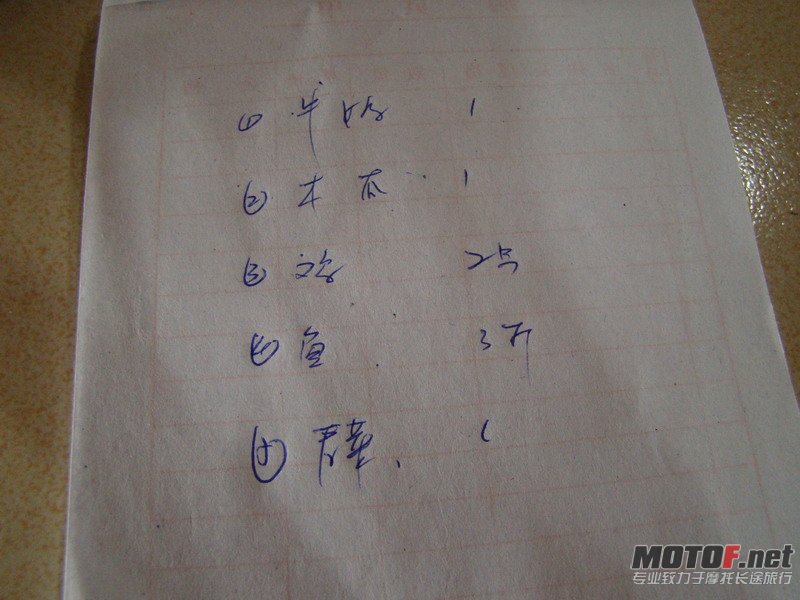 ① 牛 1
② 木瓜 1
③ 2只
④ 鱼 3斤
⑤ 1
MOTOF.net
专业致力于摩托长途旅行